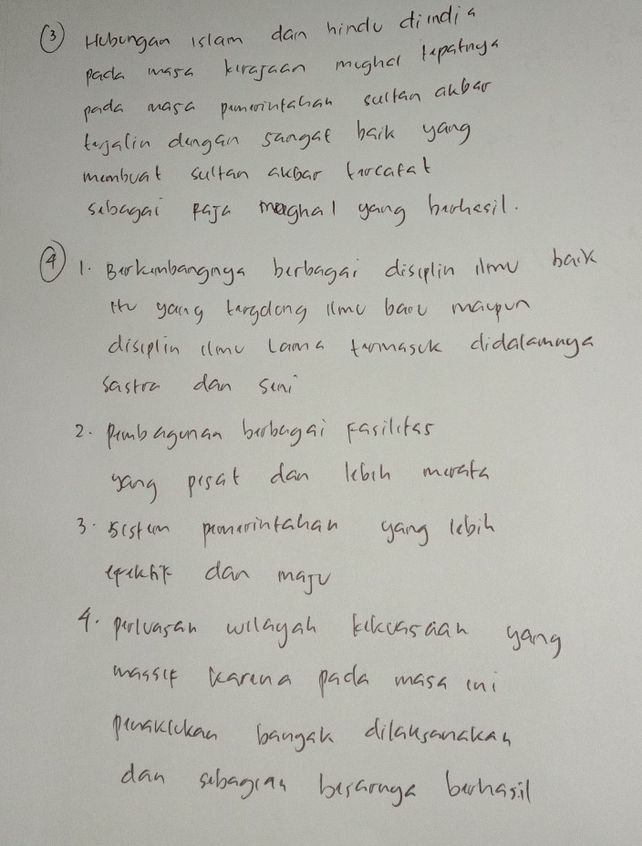 ③ Hubungan islam dan hindu diindia
pada masa kerajaan mughal tepatnya
pada masa pemerintahan sultan akbar
terjalin dengan sangat baik yang
membuat sultan akbar tercatat
sebagai raja moghal yang berhasil.
④ 1. Berkembangnya berbagai disiplin ilmu baik
itu yang tergolong ilmu baru maupun
disiplin ilmu lama termasuk didalamnya
sastra dan seni
2. Pembagunan berbagai fasilitas
yang pesat dan lebih merata
3. Sistem pemerintahan yang lebih
efektif dan maju
4. perluasan wilayah kekuasaan yang
massif karena pada masa ini
penaklukan banyak dilaksanakan
dan sebagian besarnya berhasil